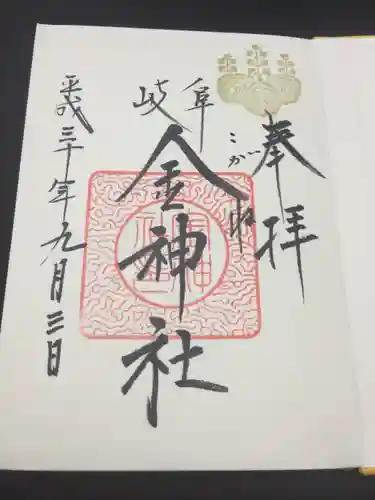 奉拝
こがね
岐阜
金神社
平成三十年九月三日